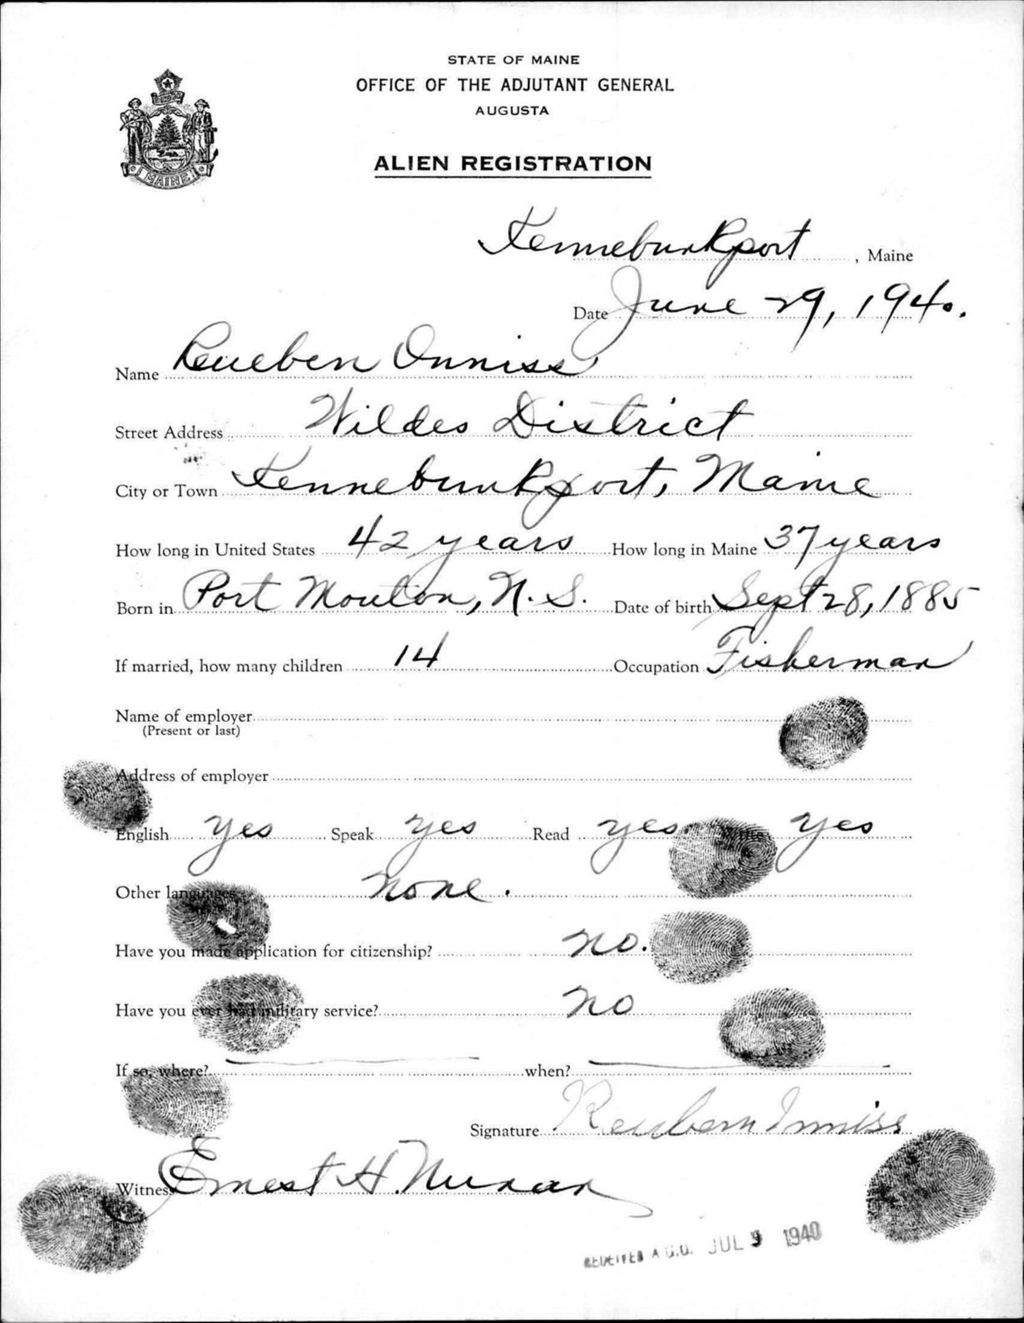 STATE OF MAINE
OFFICE OF THE ADJUTANT GENERAL
AUGUSTA
ALIEN REGISTRATION
MAINE
Kennebunkport, Maine
Date June 29, 1940.
Name Rueben Inniss
Street Address Wildes District
City or Town Kennebunkport, Maine
How long in United States 42 years How long in Maine 37 years
Born in Port Mouton, N.S. Date of birth Sept 28, 1885
If married, how many children 14 Occupation Fisherman
Name of employer
(Present or last)
Address of employer
English yes Speak yes Read yes Write yes
Other languages none.
Have you made application for citizenship? no.
Have you ever had military service? no
If so, where? when?
Signature Reubern Inniss
Witness Ernest H Nunan
RECEIVED A.G.O. JUL 9 1940